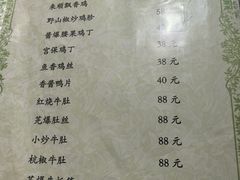 来顺飘香鸡
野山椒炒鸡胗 58 元
酱爆腰果鸡丁 38 元
宫保鸡丁 38 元
鱼香鸡丝 38 元
香酱鸭片 40 元
红烧牛肚 88 元
芫爆肚丝 88 元
小炒牛肚 88 元
杭椒牛肚 88 元